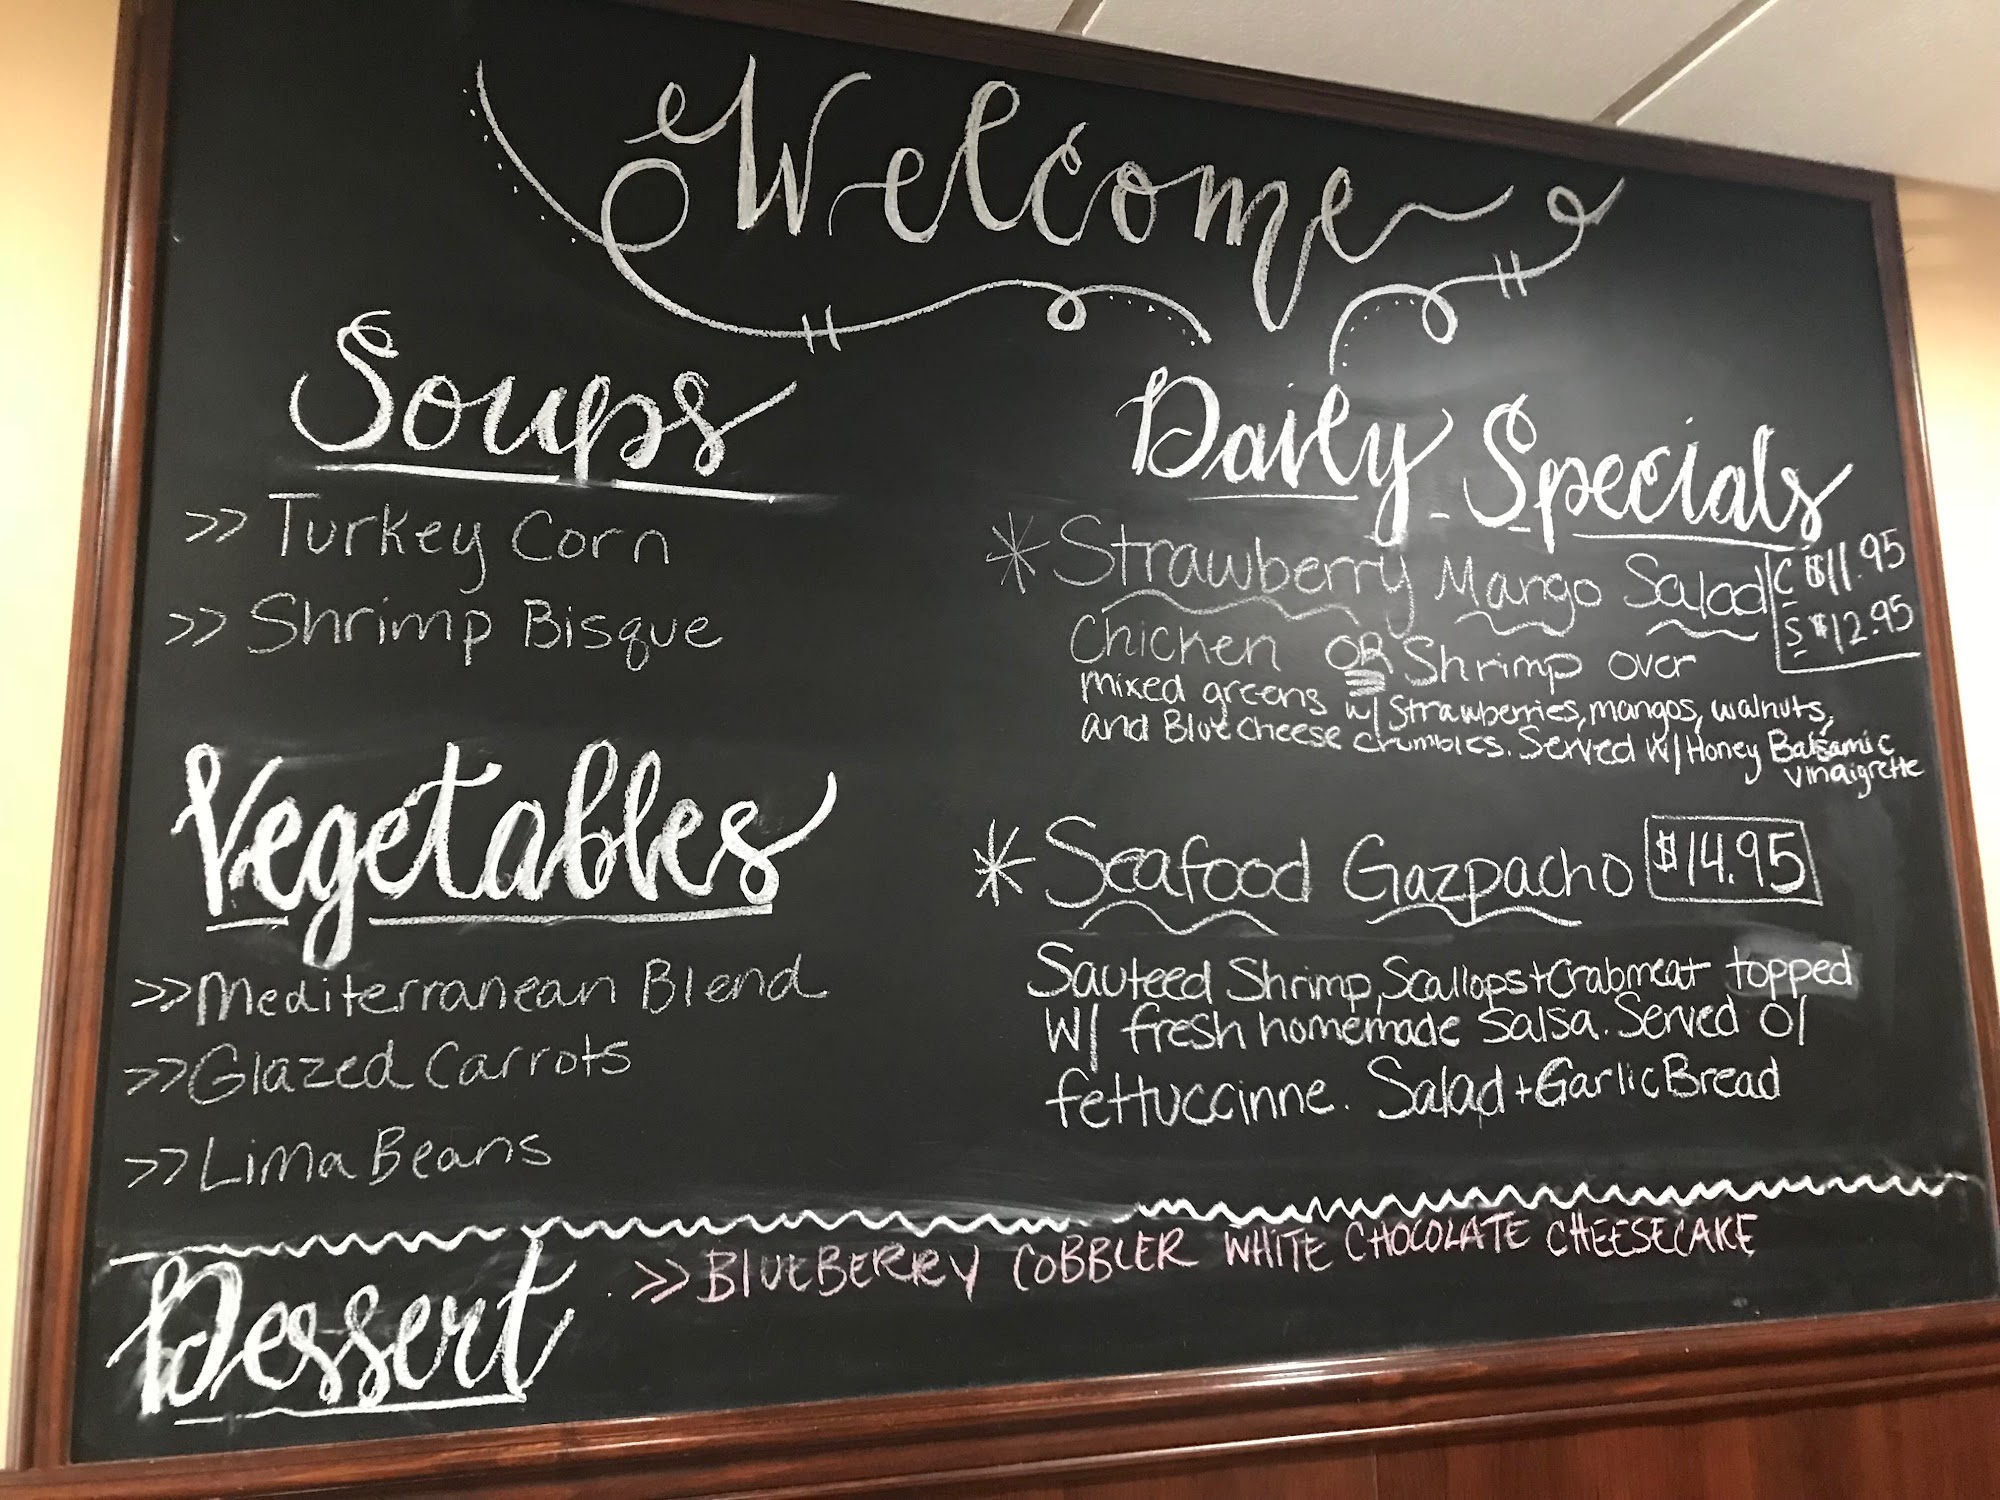 Welcome
Soups
>> Turkey Corn
>> Shrimp Bisque
Vegetables
>> Mediterranean Blend
>> Glazed Carrots
>> Lima Beans
Daily Specials
* Strawberry Mango Salad
C $11.95
S $12.95
Chicken OR Shrimp over
mixed greens w/ Strawberries, mangos, walnuts,
and Blue cheese crumbles. Served w/ Honey Balsamic
vinaigrette
* Seafood Gazpacho $14.95
Sauteed Shrimp, Scallops + Crabmeat topped
w/ fresh homemade Salsa. Served o/
fettuccinne. Salad + Garlic Bread
Dessert
>> BLUEBERRY COBBLER WHITE CHOCOLATE CHEESECAKE